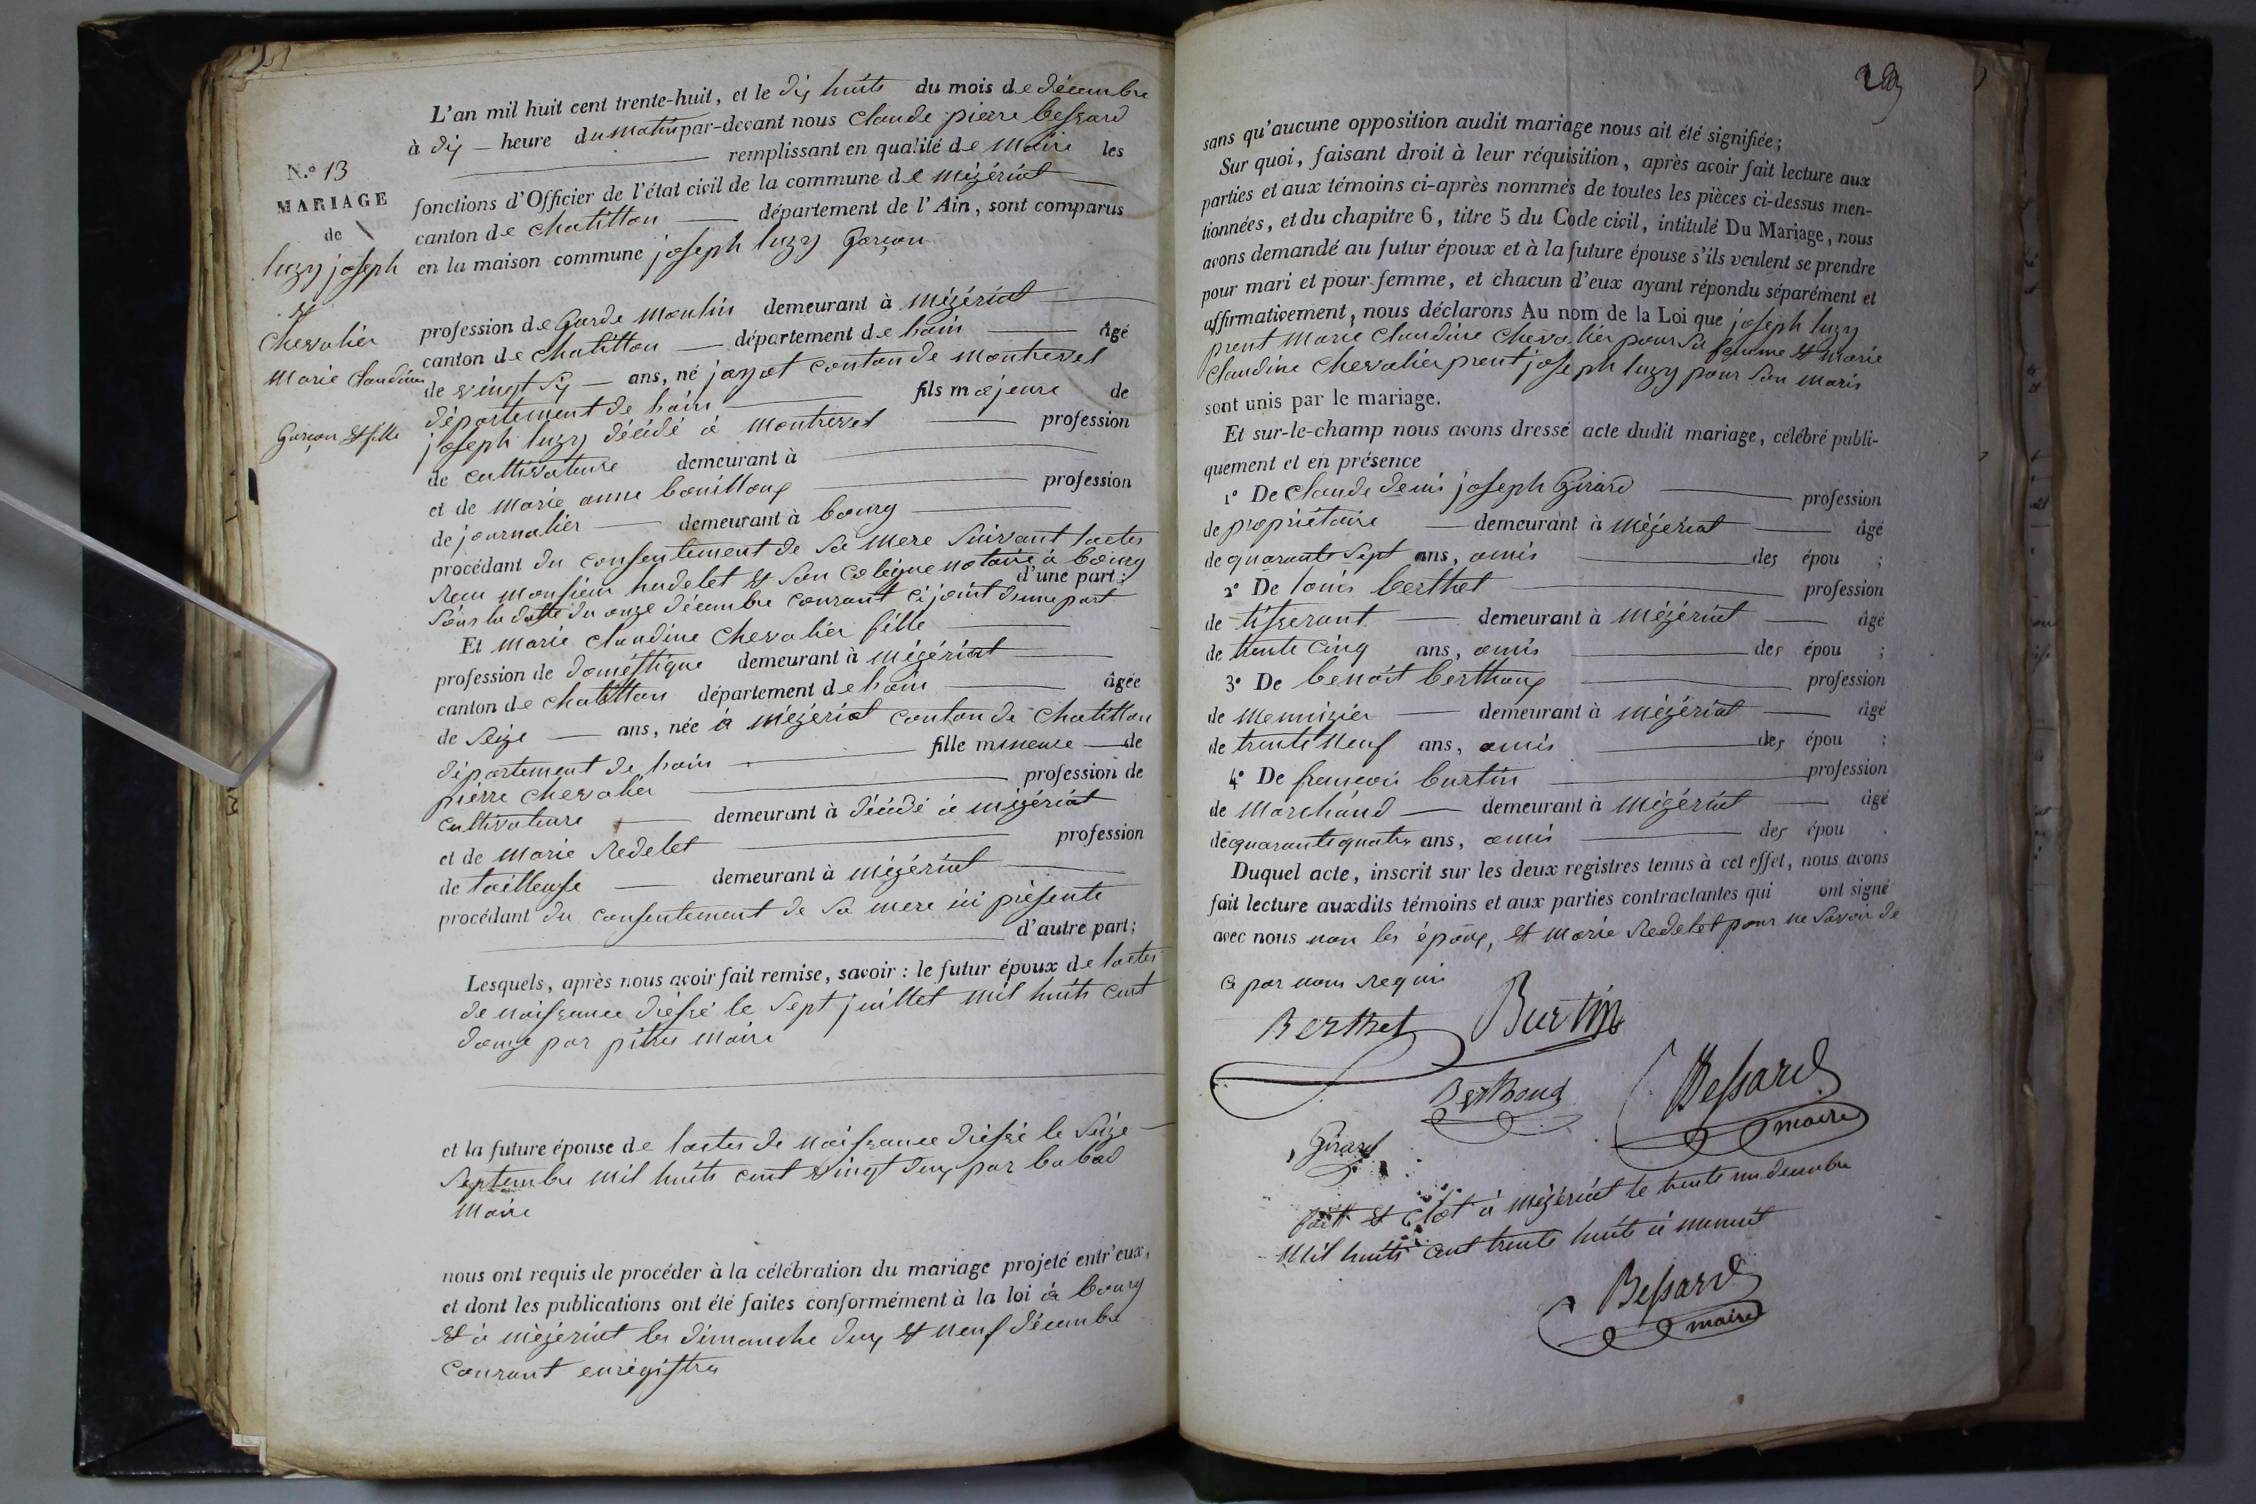 L'an mil huit cent trente-huit, et le dix huits du mois de décembre
à dix heure du matin par-devant nous claude pierre bessard
remplissant en qualité de maire les
N.° 13
fonctions d'Officier de l'état civil de la commune de mézériat
MARIAGE
canton de chatillon département de l'Ain, sont comparus
de
en la maison commune joseph luzy garçon
luzy joseph
et
chevalier
marie claudine
garçon et fille
profession de garde moulin demeurant à mézériat
canton de chatillon département de hain âgé
de vingt six ans, né jayat canton de montrevel
département de hain fils majeure de
joseph luzy décédé à montrevel profession
de cultivateure demeurant à
et de marie anne bouilloux profession
de journalier demeurant à bourg
procédant du consentement de sa mere suivant lactes
recu monsieur hudelet et son colègue notaire à bourg
d'une part;
sous la datte du onze décembre courant ci joint d'une part
Et marie claudine chevalier fille
profession de doméstique demeurant à mézériat
canton de chatillon département de hain âgée
de seize ans, née à mézériat canton de chatillon
département de hain fille mineure de
pierre chevalier profession de
cultivateure demeurant à décédé à mézériat
et de marie redelet profession
de tailleuse demeurant à mézériat
procédant du consentement de sa mere ici présente
d'autre part;
Lesquels, après nous avoir fait remise, savoir : le futur époux de lactes
de naissance dréssé le sept juillet mil huits cent
douze par pitres maire
et la future épouse de lactes de naissance dréssé le seize
septembre mil huits cent vingt deux par babad
maire
nous ont requis de procéder à la célébration du mariage projeté entr'eux,
et dont les publications ont été faites conformément à la loi à bourg
et à mézériat les dimanche deux et neuf décembre
courant enrégistres
sans qu'aucune opposition audit mariage nous ait été signifiée;
Sur quoi, faisant droit à leur réquisition, après avoir fait lecture aux
parties et aux témoins ci-après nommés de toutes les pièces ci-dessus men-
tionnées, et du chapitre 6, titre 5 du Code civil, intitulé Du Mariage, nous
avons demandé au futur époux et à la future épouse s'ils veulent se prendre
pour mari et pour femme, et chacun d'eux ayant répondu séparément et
affirmativement, nous déclarons Au nom de la Loi que joseph luzy
prent marie claudine chevalier pour sa femme et marie
claudine chevalier prent joseph luzy pour son maris
sont unis par le mariage.
Et sur-le-champ nous avons dressé acte dudit mariage, célébré publi-
quement et en présence
1° De claude denis joseph girard profession
de propriétaire demeurant à mézériat âgé
de quarante sept ans, amis des épou ;
2° De louis berthet profession
de tisserant demeurant à mézériat âgé
de trente cinq ans, amis des épou ;
3° De benoit berthoux profession
de mennizier demeurant à mézériat âgé
de trente neuf ans, amis des épou ;
4° De françois burtin profession
de marchand demeurant à mézériat âgé
de quarante quatre ans, amis des épou .
Duquel acte, inscrit sur les deux registres tenus à cet effet, nous avons
fait lecture auxdits témoins et aux parties contractantes qui ont signé
avec nous non les époux, et marie redelet pour ne savoir de
ce par nous requis
Berthet Burtin
Berthoud Bessard
maire
Girard
fait et clot à mézériat le trente un decembre
mil huits cent trente huits à minuit
Bessard
maire